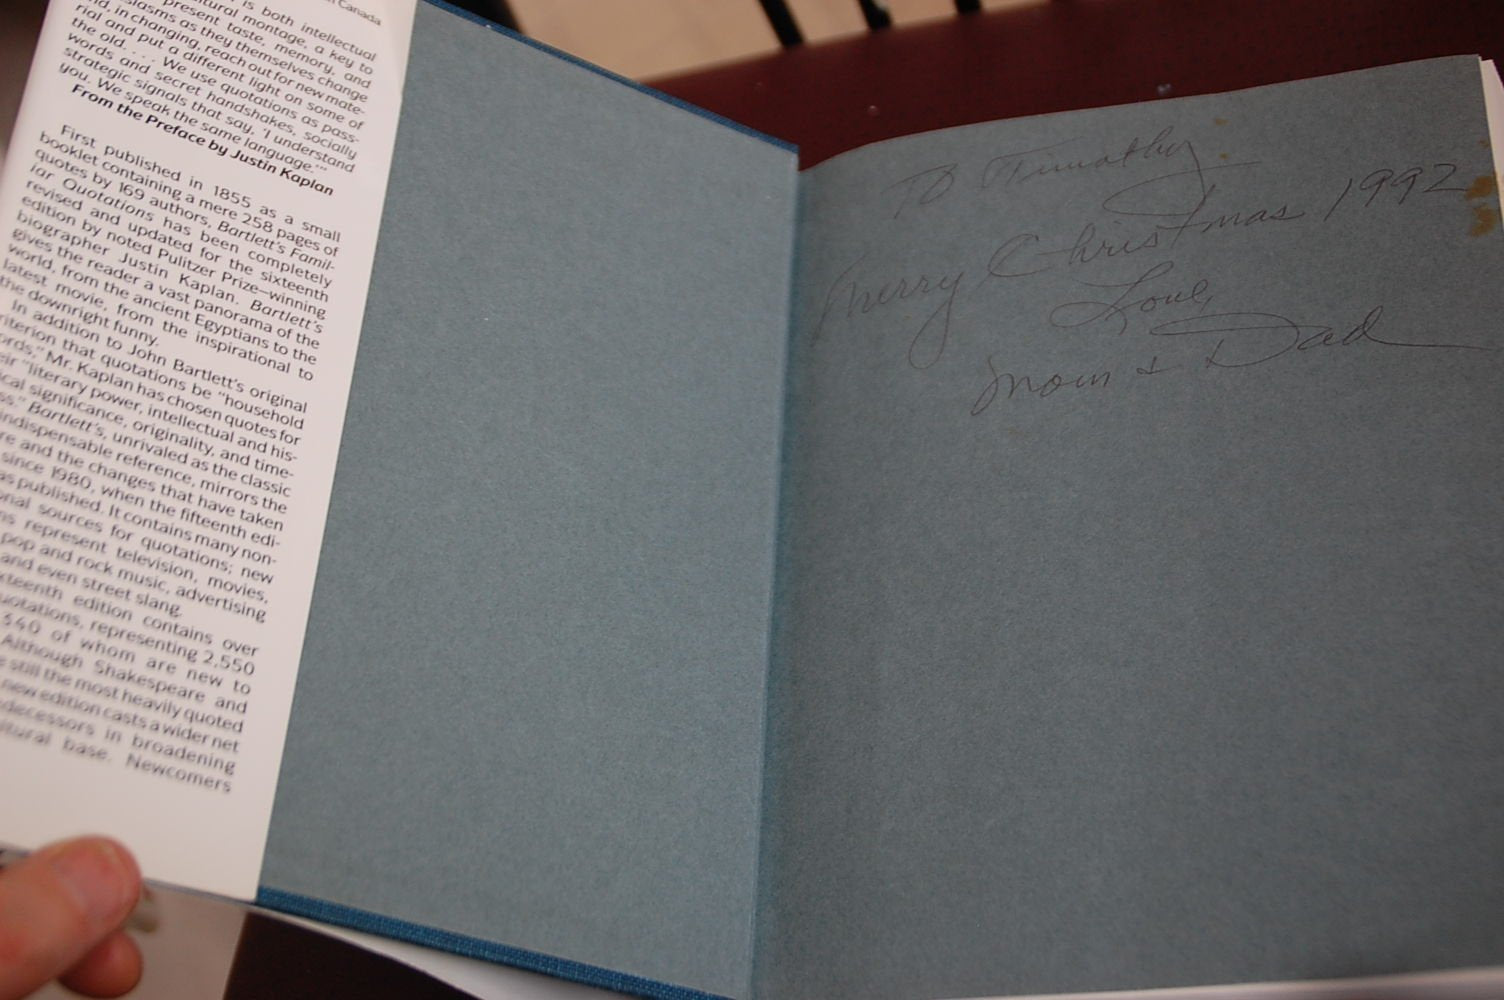 Canada
is both intellectual
tural montage, a key to
present taste, memory, and
siasms as they themselves change
nd, in changing, reach out for new mate-
rial and put a different light on some of
the old. . . . We use quotations as pass-
words and secret handshakes, socially
strategic signals that say, 'I understand
you. We speak the same language.'"
From the Preface by Justin Kaplan
First published in 1855 as a small
booklet containing a mere 258 pages of
quotes by 169 authors, Bartlett's Famil-
iar Quotations has been completely
revised and updated for the sixteenth
edition by noted Pulitzer Prize–winning
biographer Justin Kaplan. Bartlett's
gives the reader a vast panorama of the
world, from the ancient Egyptians to the
latest movie, from the inspirational to
the downright funny.
In addition to John Bartlett's original
riterion that quotations be "household
ords," Mr. Kaplan has chosen quotes for
eir "literary power, intellectual and his-
ical significance, originality, and time-
ss." Bartlett's, unrivaled as the classic
indispensable reference, mirrors the
re and the changes that have taken
since 1980, when the fifteenth edi-
as published. It contains many non-
onal sources for quotations; new
ns represent television, movies,
pop and rock music, advertising
and even street slang.
xteenth edition contains over
uotations, representing 2,550
340 of whom are new to
Although Shakespeare and
e still the most heavily quoted
new edition casts a wider net
decessors in broadening
ltural base. Newcomers
To Timothy
Merry Christmas 1992
Love,
Mom & Dad